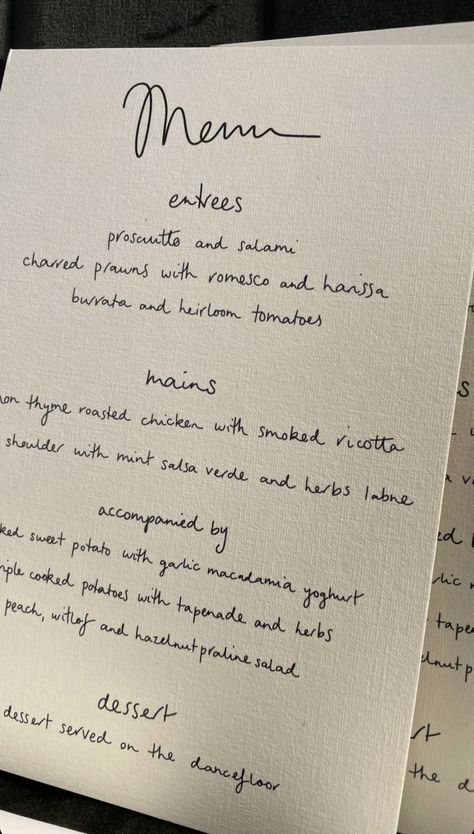 Menu
entrees
prosciutto and salami
charred prawns with romesco and harissa
burrata and heirloom tomatoes
mains
on thyme roasted chicken with smoked ricotta
shoulder with mint salsa verde and herbs labne
accompanied by
ked sweet potato with garlic macadamia yoghurt
iple cooked potatoes with tapenade and herbs
peach, witlof and hazelnut praline salad
dessert
dessert served on the dancefloor
the d